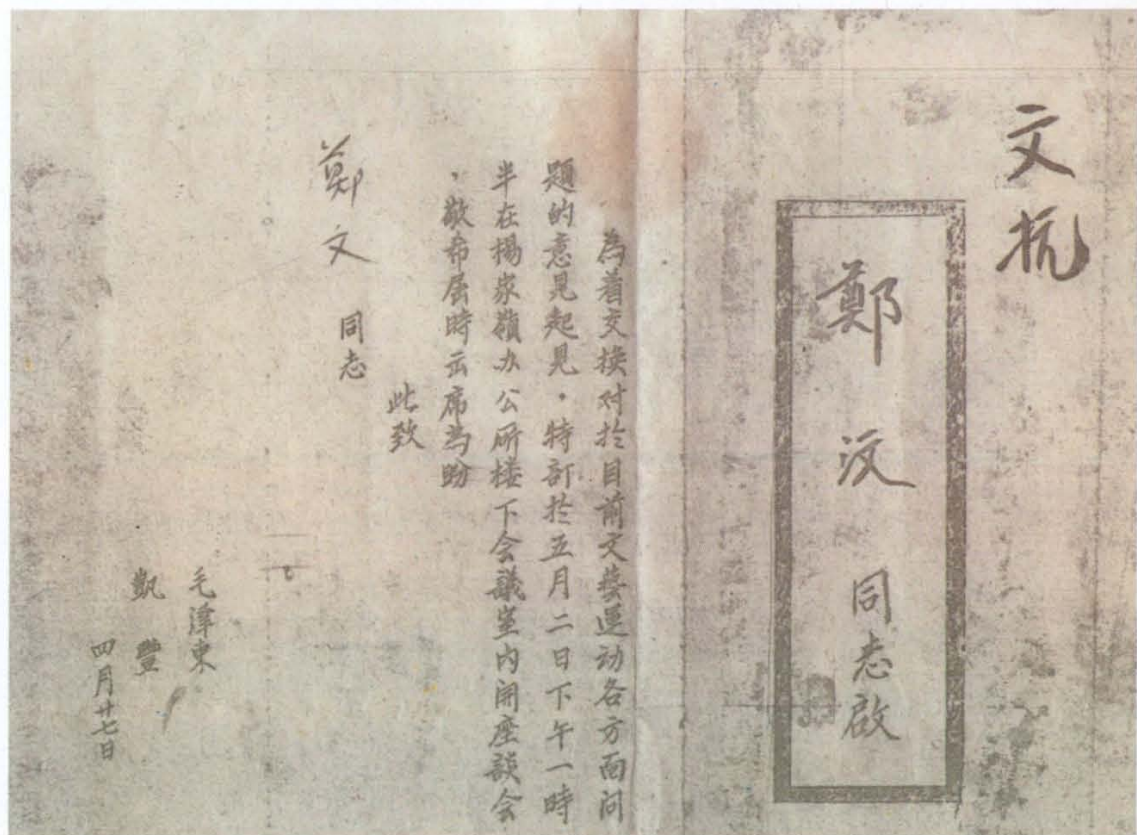 文抗
鄭汶 同志啟
為着交換对於目前文藝運动各方面问
題的意見起見，特訂於五月二日下午一時
半在楊家嶺办公所楼下会議室内開座談会
，敬希届時出席为盼
此致
鄭文 同志
毛澤東
凱豐
四月廿七日